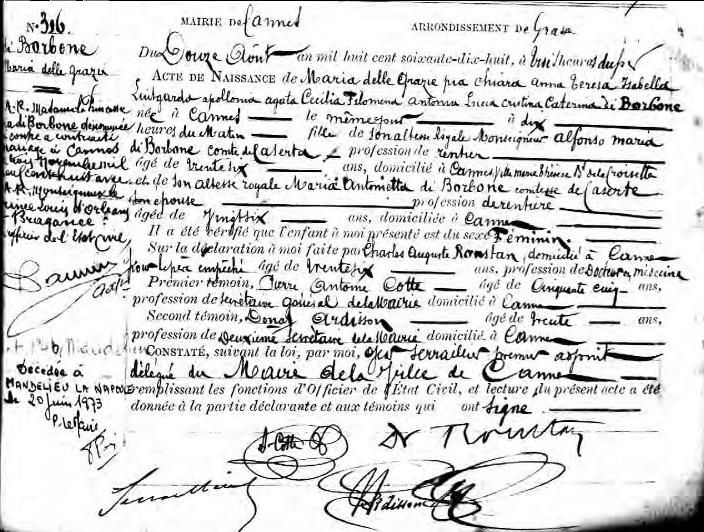 MAIRIE DE Cannes
ARRONDISSEMENT DE Grasse
N° 316
di Borbone
Maria delle Grazie
Du Douze Août an mil huit cent soixante-dix-huit, à trois heures du soir
ACTE DE NAISSANCE de Maria delle Grazie pia chiara anna Teresa Isabella
Luitgarda apollonia agata Cecilia Filomena antonia Lucia cristina Caterina di Borbone
née à Cannes le même jour à dix
heures du Matin fille de son altesse Royale Monseigneur alfonso maria
di Borbone comte de Caserta profession de rentier
âgé de trente six ans, domicilié à Cannes, Villa marie thérèse Bd de la croisette
et de Son altesse royale Maria Antonietta di Borbone comtesse de Caserte
son épouse profession de rentière
âgée de Vingt six ans, domiciliée à Cannes
Il a été certifié que l'enfant à moi présenté est du sexe Féminin
Sur la déclaration à moi faite par Charles Auguste Roustan, domicilié à Cannes
pour le père empêché âgé de trente six ans, profession de Docteur en médecine
Premier témoin, Pierre Antoine Cotte âgé de Cinquante cinq ans,
profession de Secrétaire général de la Mairie domicilié à Cannes
Second témoin, Donat Ardisson âgé de trente ans,
profession de Deuxième Secrétaire de la Mairie domicilié à Cannes
CONSTATÉ, suivant la loi, par moi, premier adjoint
délégué du Maire de la Ville de Cannes
remplissant les fonctions d'Officier de l'État Civil, et lecture du présent acte a été
donnée à la partie déclarante et aux témoins qui ont signé
S.A.R. Madame la Princesse
di Borbone dénommée
ci-contre a contracté
mariage à Cannes
avec
S.A.R. Monseigneur le
Prince Louis d'Orléans
Bragance
Officier de l'Etat Civil
Décédée à
MANDELIEU LA NAPOULE
le 20 juin 1973
P. le Maire
A. Cotte
Dr Roustan
Ardisson